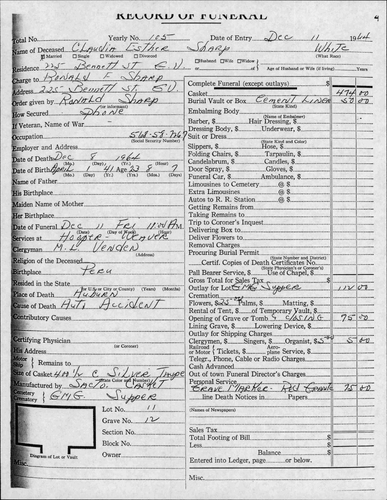 RECORD OF FUNERAL
Total No. Yearly No. 125 Date of Entry Dec 11 1964
Name of Deceased Claudia Esther Sharp White
Married Single Widowed Divorced Husband Wife Widow Age of Husband or Wife (if living) Years
(What Race)
Residence 225 Bennett St. G.V.
Charge to Ronald F Sharp
Address 225 Bennett St, G.V.
Order given by Ronald Sharp
(or informant)
How Secured Phone
If Veteran, Name of War
Occupation
(Social Security Number)
Employer and Address
Date of Death Dec 8 1964
Date of Birth April 1 41 Age 23 8 7
Name of Father
His Birthplace
Maiden Name of Mother
Her Birthplace
Date of Funeral Dec 11 Fri 11 AM
Services at Hooper-Weaver
Clergyman M. L. Venden
(Address)
Religion of the Deceased
Birthplace Peru
Resided in the State
Place of Death Auburn
Cause of Death Auto Accident
Contributory Causes
Certifying Physician
(or Coroner)
His Address
Motor Remains to
Size of Casket Silver
Manufactured by Sacto. Casket
Cemetery
Crematory
Lot No. 11
Grave No. 12
Section No.
Block No.
Owner
Diagram of Lot or Vault
Misc.
Complete Funeral (except outlays) $
Casket 474 00
Burial Vault or Box Cement Liner 50 00
Embalming Body
(Name of Embalmer)
Barber, $ Hair Dressing, $
Dressing Body, $ Underwear, $
Suit or Dress
(State Kind and Color)
Slippers, $ Hose, $
Folding Chairs, $ Tarpaulin, $
Candelabrum, $ Candles, $
Door Spray, $ Gloves, $
Funeral Car, $ Ambulance, $
Limousines to Cemetery @ $
Extra Limousines @ $
Autos to R. R. Station @ $
Getting Remains from
Taking Remains to
Trip to Coroner's Inquest
Delivering Box to
Deliver Flowers to
Removal Charges
Procuring Burial Permit
(State Number and District)
Certif. Copies of Death Certificates No.
(State Physician's or Coroner's)
Pall Bearer Service, $ Use of Chapel, $
Gross Total for Sales Tax $
Outlay for Lot
Cremation
Flowers, $ Palms, $ Matting, $
Rental of Tent, $ of Temporary Vault, $
Opening of Grave or Tomb & Closing 75 00
Lining Grave, $ Lowering Device, $
Outlay for Shipping Charges
Clergymen, $ Singers, $ Organist, $ 5 00
Railroad or Motor Tickets, $ Aeroplane Service, $
Telegr., Phone, Cable or Radio Charges
Cash Advanced
Out of town Funeral Director's Charges
Personal Service
Grave Marker - Red Granite 75 00
line Death Notices in Papers
(Names of Newspapers)
Sales Tax
Total Footing of Bill $
Less
Balance $
Entered into Ledger, page or below.
Misc.